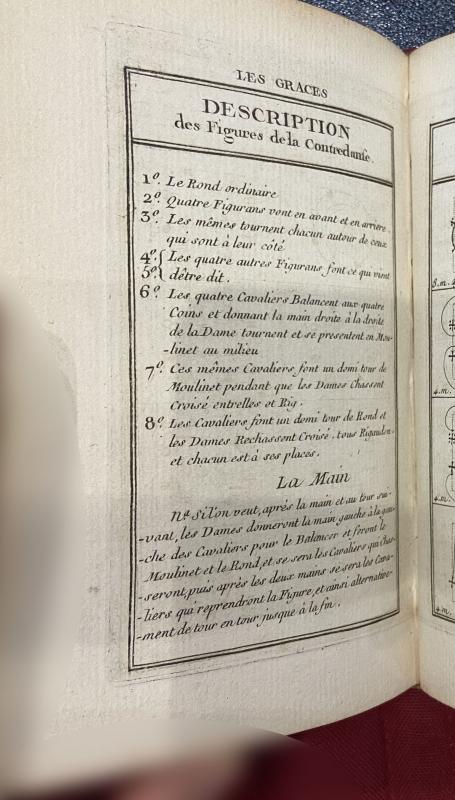 LES GRACES
DESCRIPTION
des Figures de la Contredanse.
1º. Le Rond ordinaire
2º. Quatre Figurans vont en avant et en arriere.
3º. Les mêmes tournent chacun autour de ceux
qui sont à leur côté
4º. { Les quatre autres Figurans font ce qui vient
5º. { dêtre dit.
6º. Les quatre Cavaliers Balancent aux quatre
Coins et donnant la main droite à la droite
de la Dame tournent et se presentent en Mou-
-linet au milieu
7º. Ces mêmes Cavaliers font un demi tour de
Moulinet pendant que les Dames Chassent
Croisé entrelles et Rig.
8º. Les Cavaliers font un demi tour de Rond et
les Dames Rechassent Croisé, tous Rigaudon
et chacun est à ses places.
La Main
Nª. Si l'on veut, aprés la main et au tour sui-
-vant, les Dames donneront la main gauche à la gau-
-che des Cavaliers pour le Balancer et feront le
Moulinet et le Rond, et se sera les Cavaliers qui Chas-
-seront, puis aprés les deux mains se sera les Cava-
-liers qui reprendront la Figure, et ainsi alternative-
-ment de tour en tour jusque à la fin.
8.m.
4.m.
4.m.